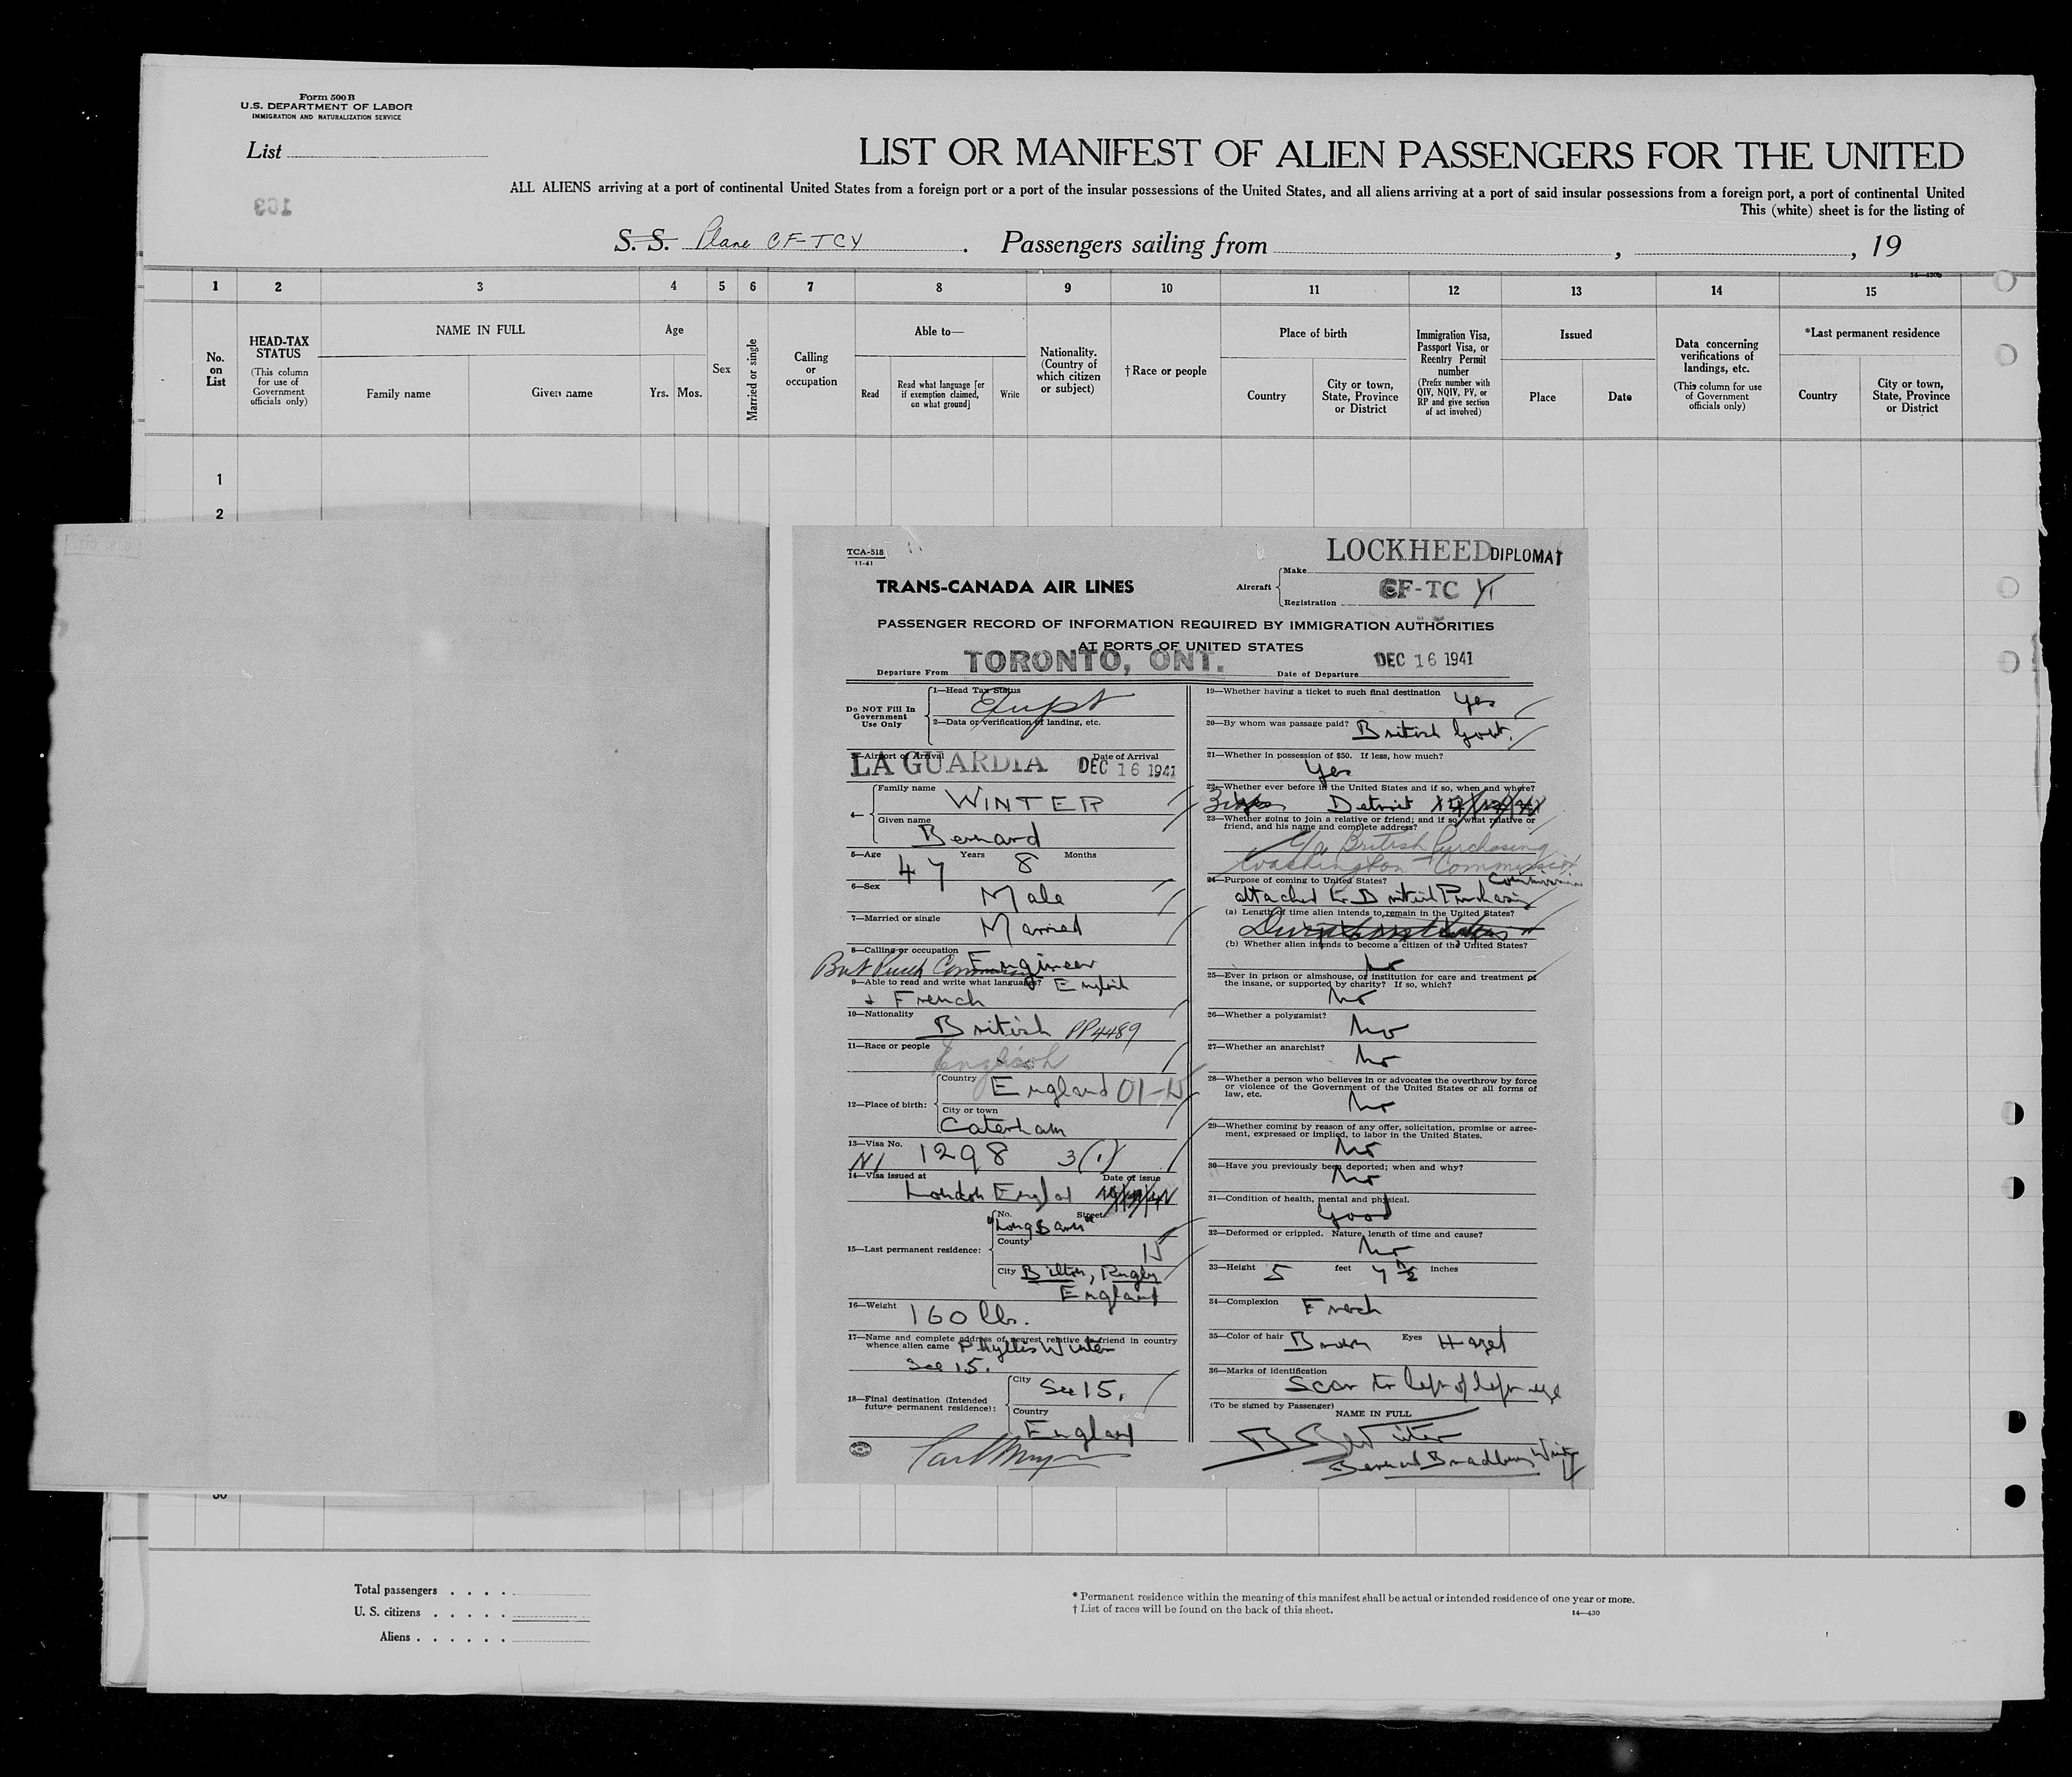 Form 500 B
U.S. DEPARTMENT OF LABOR
IMMIGRATION AND NATURALIZATION SERVICE
List
LIST OR MANIFEST OF ALIEN PASSENGERS FOR THE UNITED
ALL ALIENS arriving at a port of continental United States from a foreign port or a port of the insular possessions of the United States, and all aliens arriving at a port of said insular possessions from a foreign port, a port of continental United
This (white) sheet is for the listing of
S. S. Plane CF-TCY . Passengers sailing from , , 19
14—430b
1 2 3 4 5 6 7 8 9 10 11 12 13 14 15
No. on List
HEAD-TAX STATUS
(This column for use of Government officials only)
NAME IN FULL
Family name
Given name
Age
Yrs. Mos.
Sex
Married or single
Calling or occupation
Able to—
Read
Read what language [or if exemption claimed, on what ground]
Write
Nationality. (Country of which citizen or subject)
†Race or people
Place of birth
Country
City or town, State, Province or District
Immigration Visa, Passport Visa, or Reentry Permit number
(Prefix number with QIV, NQIV, PV, or RP and give section of act involved)
Issued
Place
Date
Data concerning verifications of landings, etc.
(This column for use of Government officials only)
*Last permanent residence
Country
City or town, State, Province or District
1
2
TCA-518
11-41
LOCKHEED DIPLOMAT
TRANS-CANADA AIR LINES
Aircraft
Make
Registration CF-TC Y
PASSENGER RECORD OF INFORMATION REQUIRED BY IMMIGRATION AUTHORITIES
AT PORTS OF UNITED STATES
Departure From TORONTO, ONT.
Date of Departure DEC 16 1941
Do NOT Fill In Government Use Only
1—Head Tax Status
2—Data or verification of landing, etc.
3—Airport of Arrival LA GUARDIA
Date of Arrival DEC 16 1941
4—
Family name WINTER
Given name Bernard
5—Age 47 Years 8 Months
6—Sex Male
7—Married or single Married
8—Calling or occupation Engineer
9—Able to read and write what language? English
& French
10—Nationality British PP4489
11—Race or people English
12—Place of birth:
Country England
City or town Caterham
13—Visa No. 1298 3(1)
14—Visa issued at London
Date of issue
15—Last permanent residence:
No. Street
County
City Bilton, Rugby
England
16—Weight 160 lbs.
17—Name and complete address of nearest relative or friend in country
whence alien came Phyllis Winter
See 15.
18—Final destination (Intended future permanent residence):
City See 15.
Country England
19—Whether having a ticket to such final destination Yes
20—By whom was passage paid? British Govt.
21—Whether in possession of $50. If less, how much?
Yes
22—Whether ever before in the United States and if so, when and where?
Detroit
23—Whether going to join a relative or friend; and if so, what relative or
friend, and his name and complete address?
c/o British Purchasing
Washington Commission
24—Purpose of coming to United States? Commission
attached to British Purchasing
(a) Length of time alien intends to remain in the United States?
(b) Whether alien intends to become a citizen of the United States?
No
25—Ever in prison or almshouse, or institution for care and treatment of
the insane, or supported by charity? If so, which?
No
26—Whether a polygamist?
No
27—Whether an anarchist?
No
28—Whether a person who believes in or advocates the overthrow by force
or violence of the Government of the United States or all forms of
law, etc.
No
29—Whether coming by reason of any offer, solicitation, promise or agree-
ment, expressed or implied, to labor in the United States.
No
30—Have you previously been deported; when and why?
No
31—Condition of health, mental and physical.
Good
32—Deformed or crippled. Nature, length of time and cause?
No
33—Height 5 feet 7 ½ inches
34—Complexion Fresh
35—Color of hair Brown Eyes Hazel
36—Marks of identification
Scar to left of left eye
(To be signed by Passenger)
NAME IN FULL
B B Winter
Bernard Bradbury Winter
30
Total passengers . . . .
U. S. citizens . . . . .
Aliens . . . . . .
* Permanent residence within the meaning of this manifest shall be actual or intended residence of one year or more.
† List of races will be found on the back of this sheet.
14—430